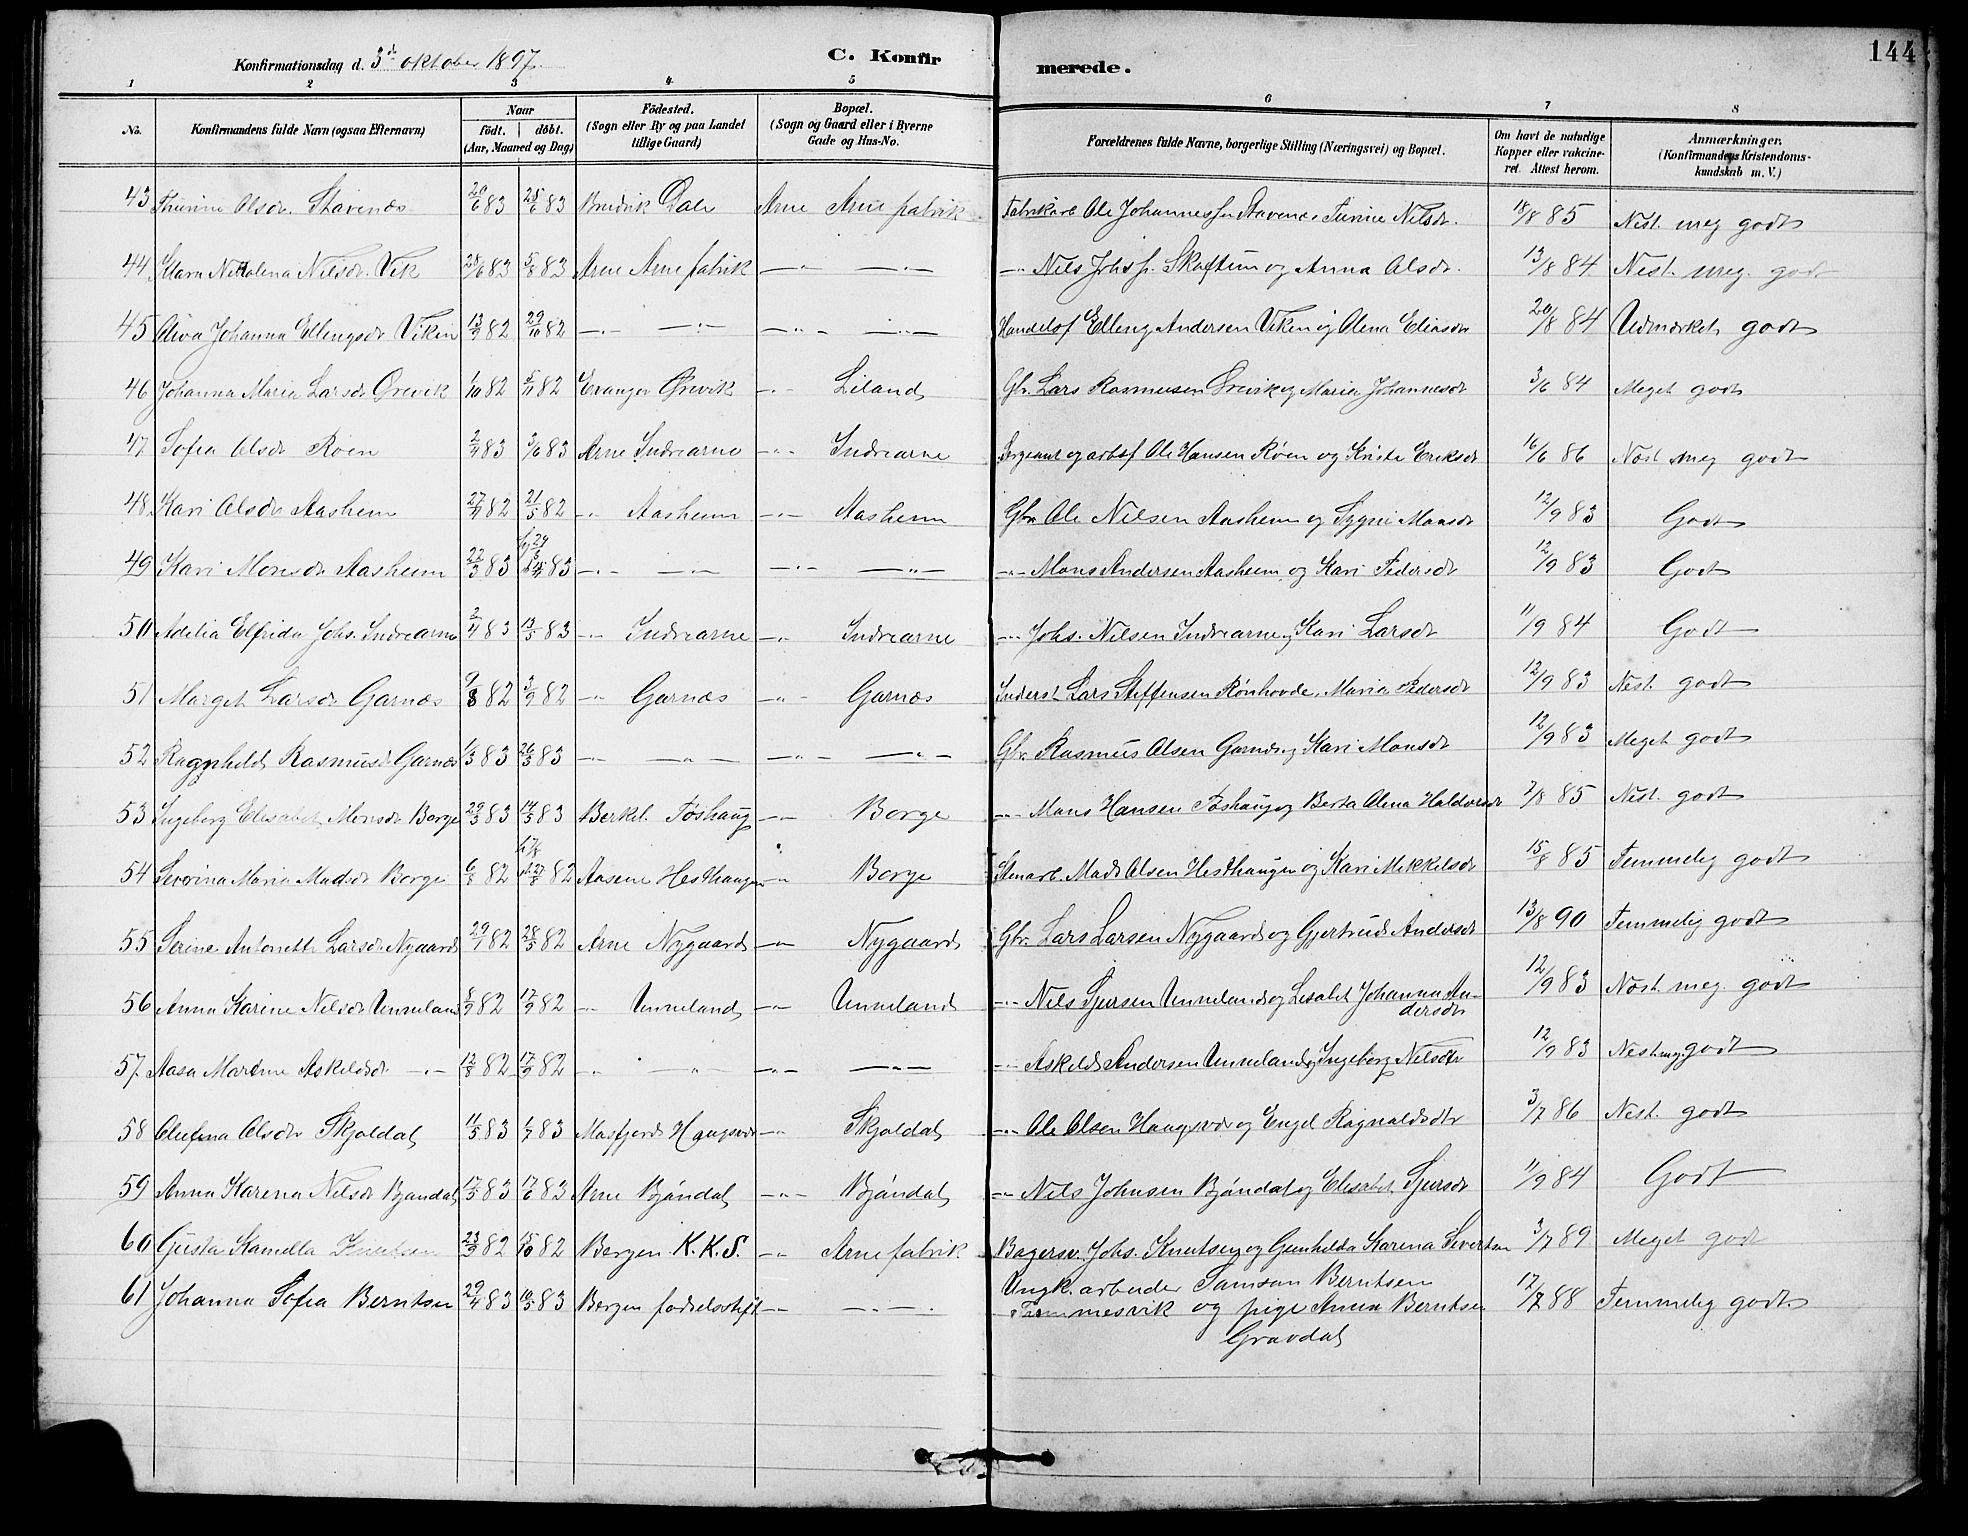 Konfirmationsdag d. 3d oktober 1897. C. Konfirmerede. 144
1 2 3 4 5 6 7 8
No. Konfirmandens fulde Navn (ogsaa Efternavn) Naar födt. döbt. (Aar, Maaned og Dag) Födested. (Sogn eller By og paa Landet tillige Gaard) Bopæl. (Sogn og Gaard eller i Byerne Gade og Hus-No. Forældrenes fulde Navne, borgerlige Stilling (Næringsvei) og Bopæl. Om havt de naturlige Kopper eller vakcineret. Attest herom. Anmærkninger. (Konfirmandens Kristendomskundskab m. V.)
43 Thurine Olsdr. Stavenæs 20/6 83 25/6 83 Bredvik Dale Arne Arne fabrik Fabrikarb Ole Johannessen Stavenes Turine Nilsdr. 18/8 85 Nest. meg godt
44 Klara Nikolena Nilsdr. Vik 28/6 83 5/8 83 Arne Arne fabrik —"— —"— —"— Nils Johs f. Skaftun og Anna Olsdr. 13/8 84 Nest. meg. godt
45 Oliva Johanna Ellingsdr Viken 13/9 82 29/10 82 —"— —"— —"— —"— Handelsf Elleng Andersen Viken og Olena Eliasdr 20/8 84 Udmærket godt
46 Johanna Maria Larsdr Örevik 1/10 82 5/11 82 Evanger Örevik —"— Liland Gbr. Lars Rasmusen Örevik og Maria Johannesdr 3/6 84 Meget godt
47 Sofia Olsdr Röen 2/4 83 3/6 83 Arne Indrearne —"— Indrearne Sergeant og arbsf Ole Hansen Röen og Kriste Eriksdr 16/6 86 Næst meg godt
48 Kari Olsdr Aasheim 27/4 82 21/5 82 —"— Aasheim —"— Aasheim Gbr. Ole Nilsen Aasheim og Sygni Monsdr 12/9 83 Godt
49 Kari Monsdr Aasheim 22/3 83 83 —"— —"— —"— —"— —"— Mons Andersen Aasheim og Kari Pedersdr 12/9 83 Godt
50 Adelia Elfrida Johs. Indrearne 2/4 83 13/5 83 —"— Indrearne —"— Indrearne —"— Johs. Nilsen Indrearne og Kari Larsdr 11/9 84 Godt
51 Marget Larsdr Garnæs 9/8 82 3/9 82 —"— Garnæs —"— Garnæs Inderst Lars Steffensen Rönhovde, Maria Pedersdr 12/9 83 Nest. godt
52 Ragnhild Rasmusd Garnæs 1/3 83 26/3 83 —"— —"— —"— —"— Gbr. Rasmus Olsen Garnæs og Kari Monsdr 12/9 83 Meget godt
53 Ingeborg Elisabet Monsdr Borge 29/3 83 14/5 83 Berkel. Töshaug —"— Borge —"— Mons Hansen Töshaug og Berta Olena Haldorsdr 7/8 85 Nest. godt
54 Severina Maria Madsdr Borge 6/8 82 27/8 82 Aasene Hesthaugen —"— Borge Stenarb. Mads Olsen Hesthaugen og Kari Mikkelsdr 15/8 85 Temmelig godt
55 Serine Antonette Larsdr Nygaard 29/1 82 28/5 82 Arne Nygaard —"— Nygaard Gbr. Lars Larsen Nygaard og Gjertrud Andersdr 13/8 90 Temmelig godt
56 Anna Karine Nilsdr Unneland 8/9 82 17/9 82 —"— Unneland —"— Unneland —"— Nils Sjursen Unneland og Lisabet Johanna Andersdr 12/9 83 Næst. meg. godt
57. Aasa Martine Askeldsdr —"— 12/8 82 17/9 82 —"— —"— —"— —"— —"— Askeld Andersen Unneland og Ingeborg Nilsdtr 12/9 83 Nest meg. godt
58 Olufina Olsdtr Skjoldal 11/5 83 1/7 83 Masfjord Haugsvær —"— Skjoldal —"— Ole Olsen Haugsvær og Engel Ragnaldsdtr 3/7 86 Nest. godt
59 Anna Karena Nilsdr Bjöndal 15/5 83 17/6 83 Arne Bjöndal —"— Bjöndal —"— Nils Johnsen Bjöndal og Elisabet Sjursdr 11/9 84 Godt
60 Gusta Kamella Knutsen 23/9 82 15/10 82 Bergen K.K.S. —"— Arne fabrik Bagersv. Johs. Knutsen og Gunhilda Karena Sivertsen 3/7 89 Meget godt
61 Johanna Sofia Berntsen 29/4 83 10/5 83 Bergen fødselsstift. —"— —"— Ungk. arbeider Samson Berntsen
Trommesvik og pige Anna Berntsen 17/7 88 Temmelig godt.
Gravdal